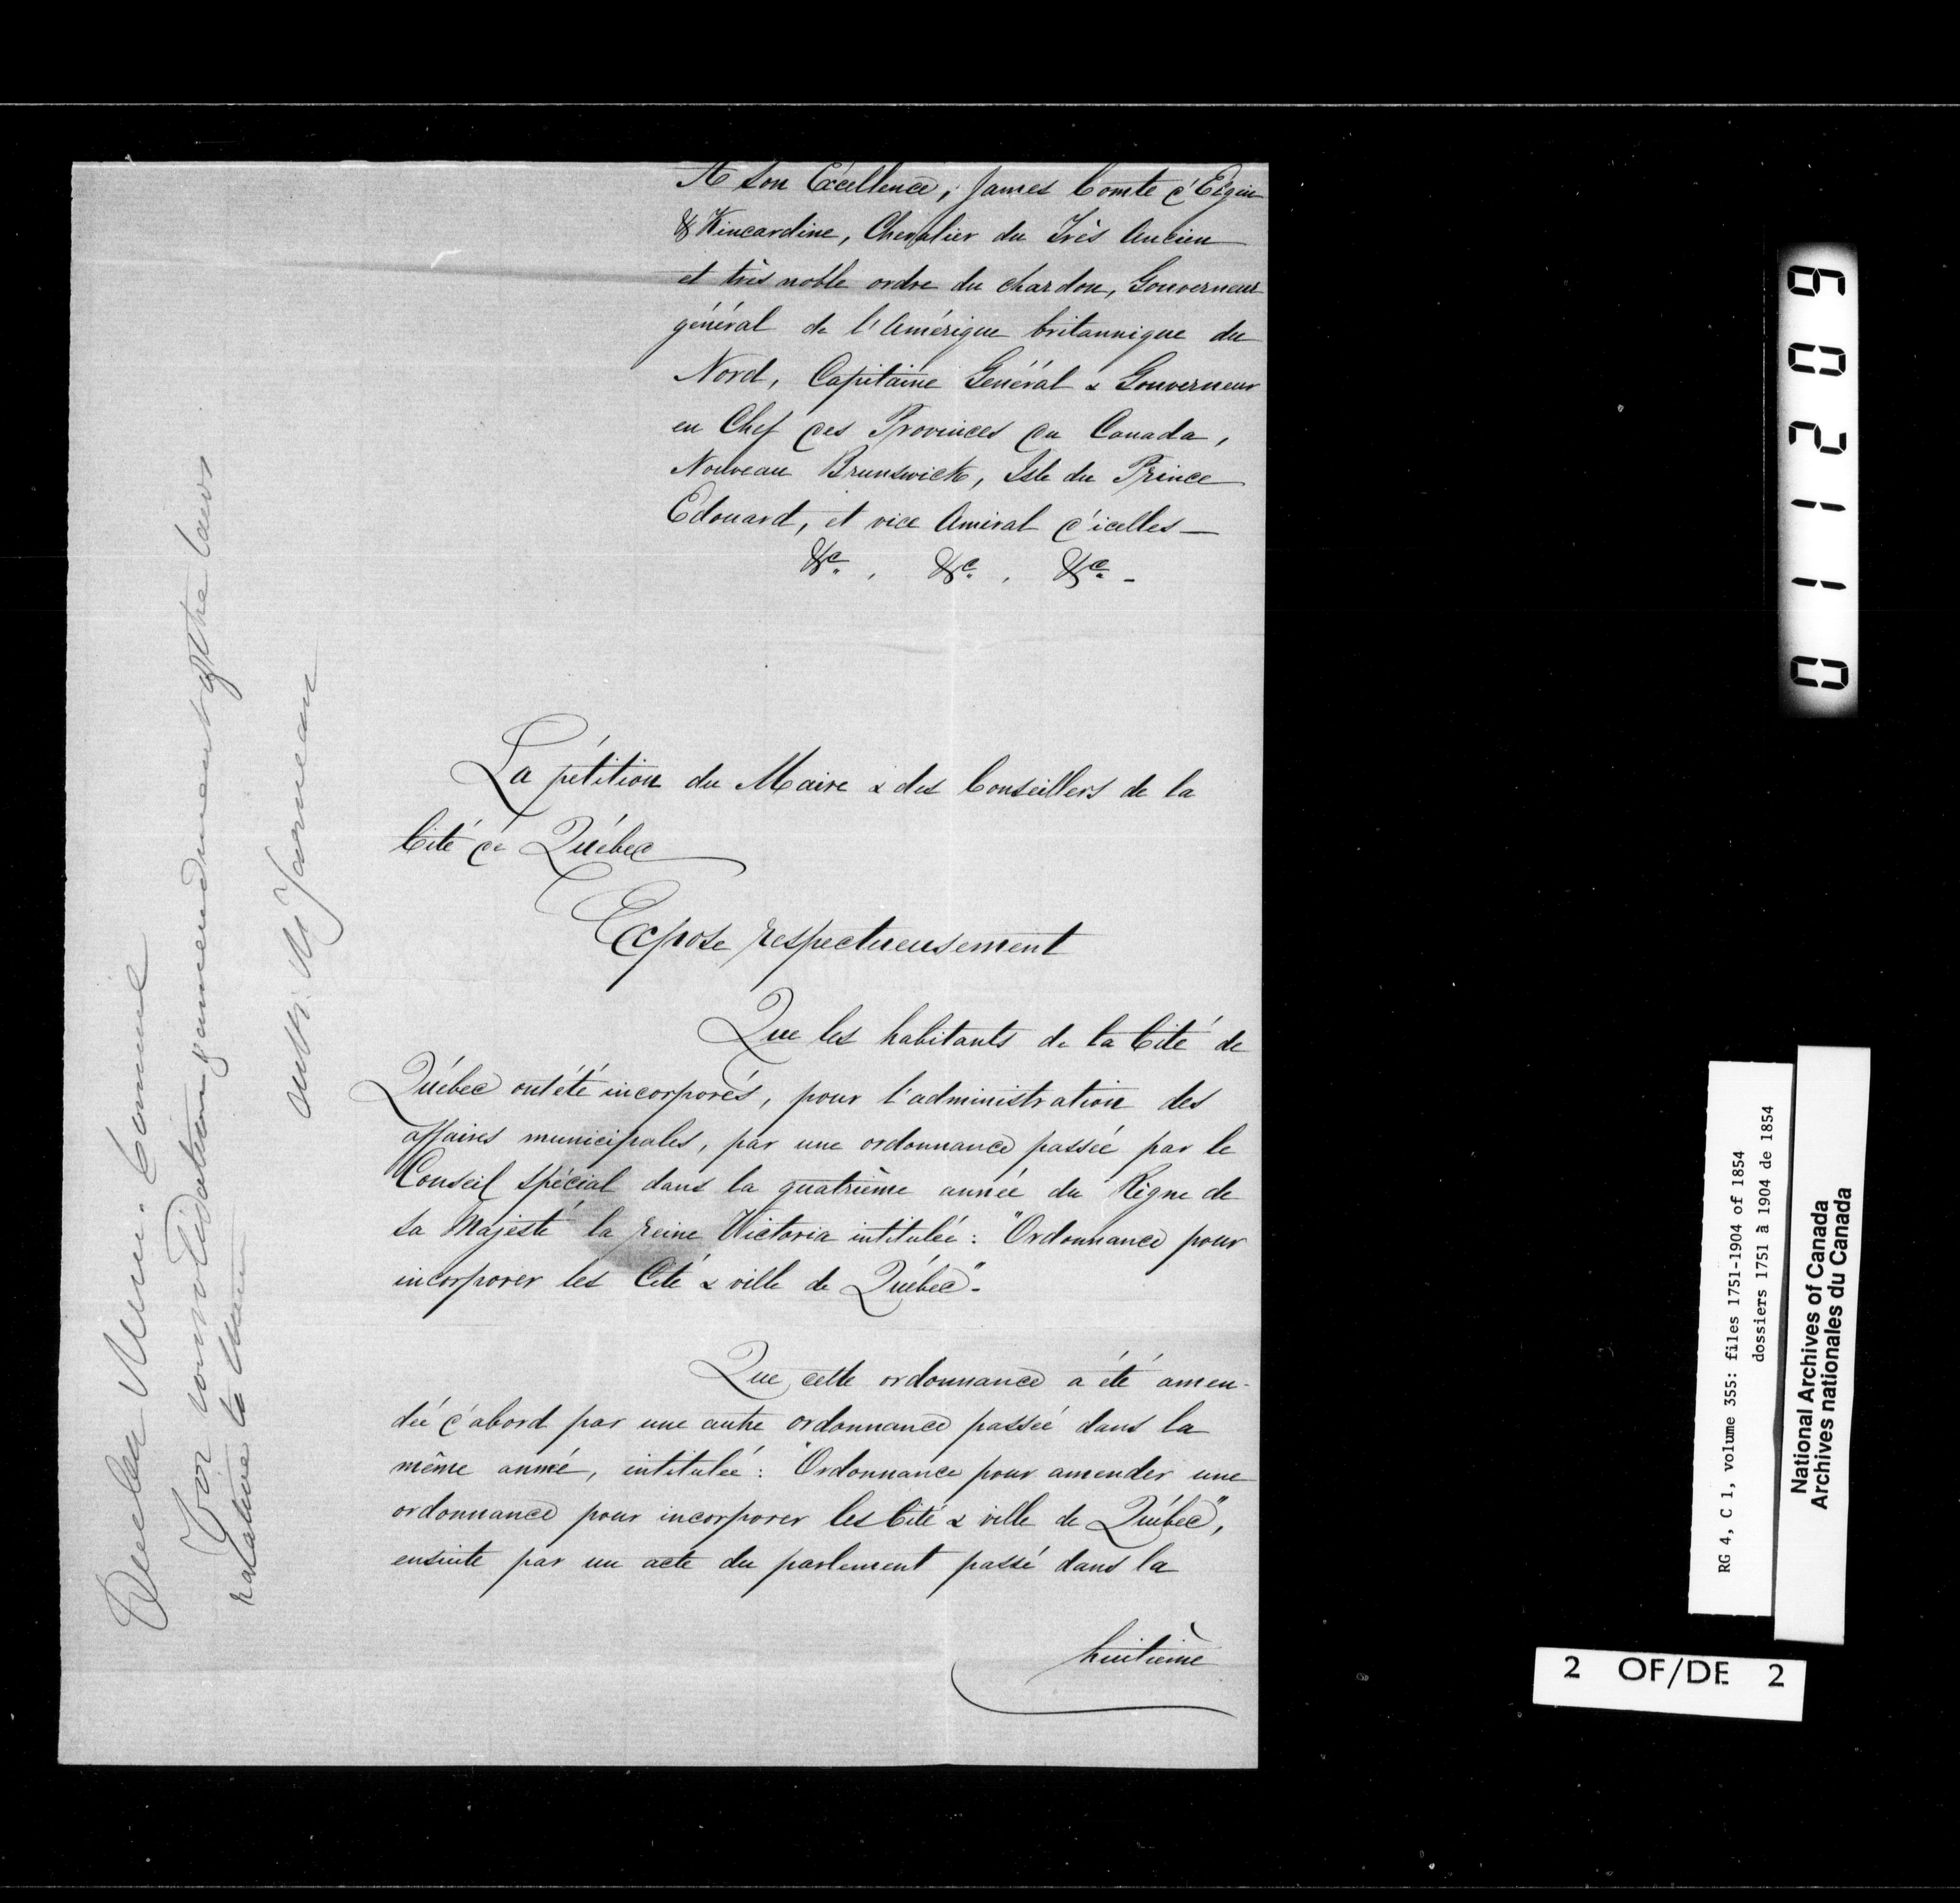 A Son Excellence, James Comte d'Elgin
& Kincardine, Chevalier du Très Ancien
et très noble ordre du chardon, Gouverneur
général de l'Amérique britannique du
Nord, Capitaine Général & Gouverneur
en Chef des Provinces du Canada,
Nouveau Brunswick, Isle du Prince
Edouard, et vice Amiral d'icelles —
&c. , &c. , &c. -
La pétition du Maire & des Conseillers de la
Cité de Québec
Expose respectueusement
Que les habitants de la Cité de
Québec ont été incorporés, pour l'administration des
affaires municipales, par une ordonnance passée par le
Conseil spécial dans la quatrième année du Règne de
Sa Majesté la reine Victoria intitulée : "Ordonnance pour
incorporer les Cité & ville de Québec".
Que cette ordonnance a été amen-
dée d'abord par une autre ordonnance passée dans la
même année, intitulée : "Ordonnance pour amender une
ordonnance pour incorporer les Cité & ville de Québec",
ensuite par un acte du parlement passé dans la
huitième
Quebec Mun. Council
For consolidation & amendment of the laws
relative to
Garneau
011209
RG 4, C 1, volume 355: files 1751-1904 of 1854
dossiers 1751 à 1904 de 1854
National Archives of Canada
Archives nationales du Canada
2 OF/DE 2